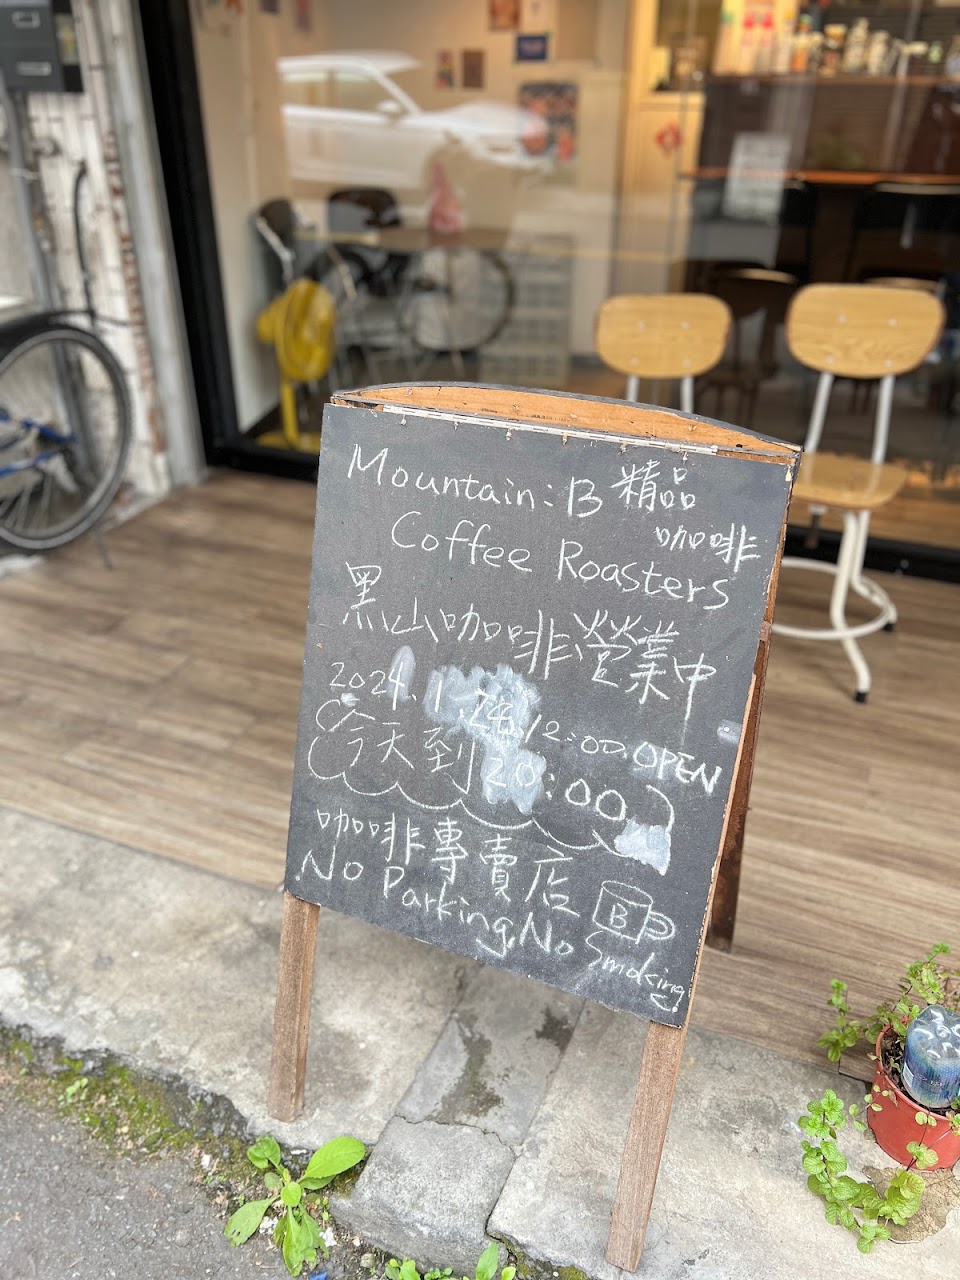 Mountain:B 精品
咖啡
Coffee Roasters
黑山咖啡營業中
2024.1.24.12:00.OPEN
今天到20:00
咖啡專賣店
B
No Parking.No Smoking.